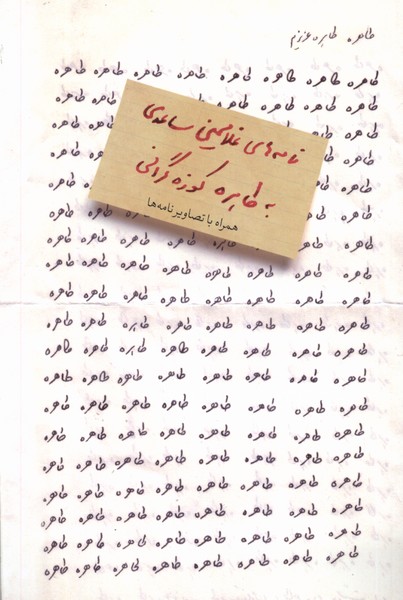 طاهره طاهره عزیزم
طاهره طاهره طاهره طاهره طاهره طاهره طاهره طاهره
طاهره طاهره طاهره طاهره طاهره
طاهره طاهره طاهره
طاهره طاهره
نامه‌های غلامحسین ساعدی
به طاهره کوزه‌گرانی
همراه با تصاویر نامه‌ها
طاهره طاهره
طاهره طاهره طاهره
طاهره طاهره طاهره طاهره
طاهره طاهره طاهره طاهره طاهره طاهره طاهره طاهره
طاهره طاهره طاهره طاهره طاهره طاهره طاهره طاهره
طاهره طاهره طاهره طاهره طاهره طاهره طاهره طاهره
طاهره طاهره طاهره طاهره طاهره طاهره طاهره طاهره
طاهره طاهره طاهره طاهره طاهره طاهره طاهره طاهره
طاهره طاهره طاهره طاهره طاهره طاهره طاهره طاهره
طاهره طاهره طاهره طاهره طاهره طاهره طاهره طاهره
طاهره طاهره طاهره طاهره طاهره طاهره طاهره طاهره
طاهره طاهره طاهره طاهره طاهره طاهره طاهره طاهره
طاهره طاهره طاهره طاهره طاهره طاهره طاهره طاهره
طاهره طاهره طاهره طاهره طاهره طاهره طاهره طاهره
طاهره طاهره طاهره طاهره طاهره طاهره طاهره طاهره